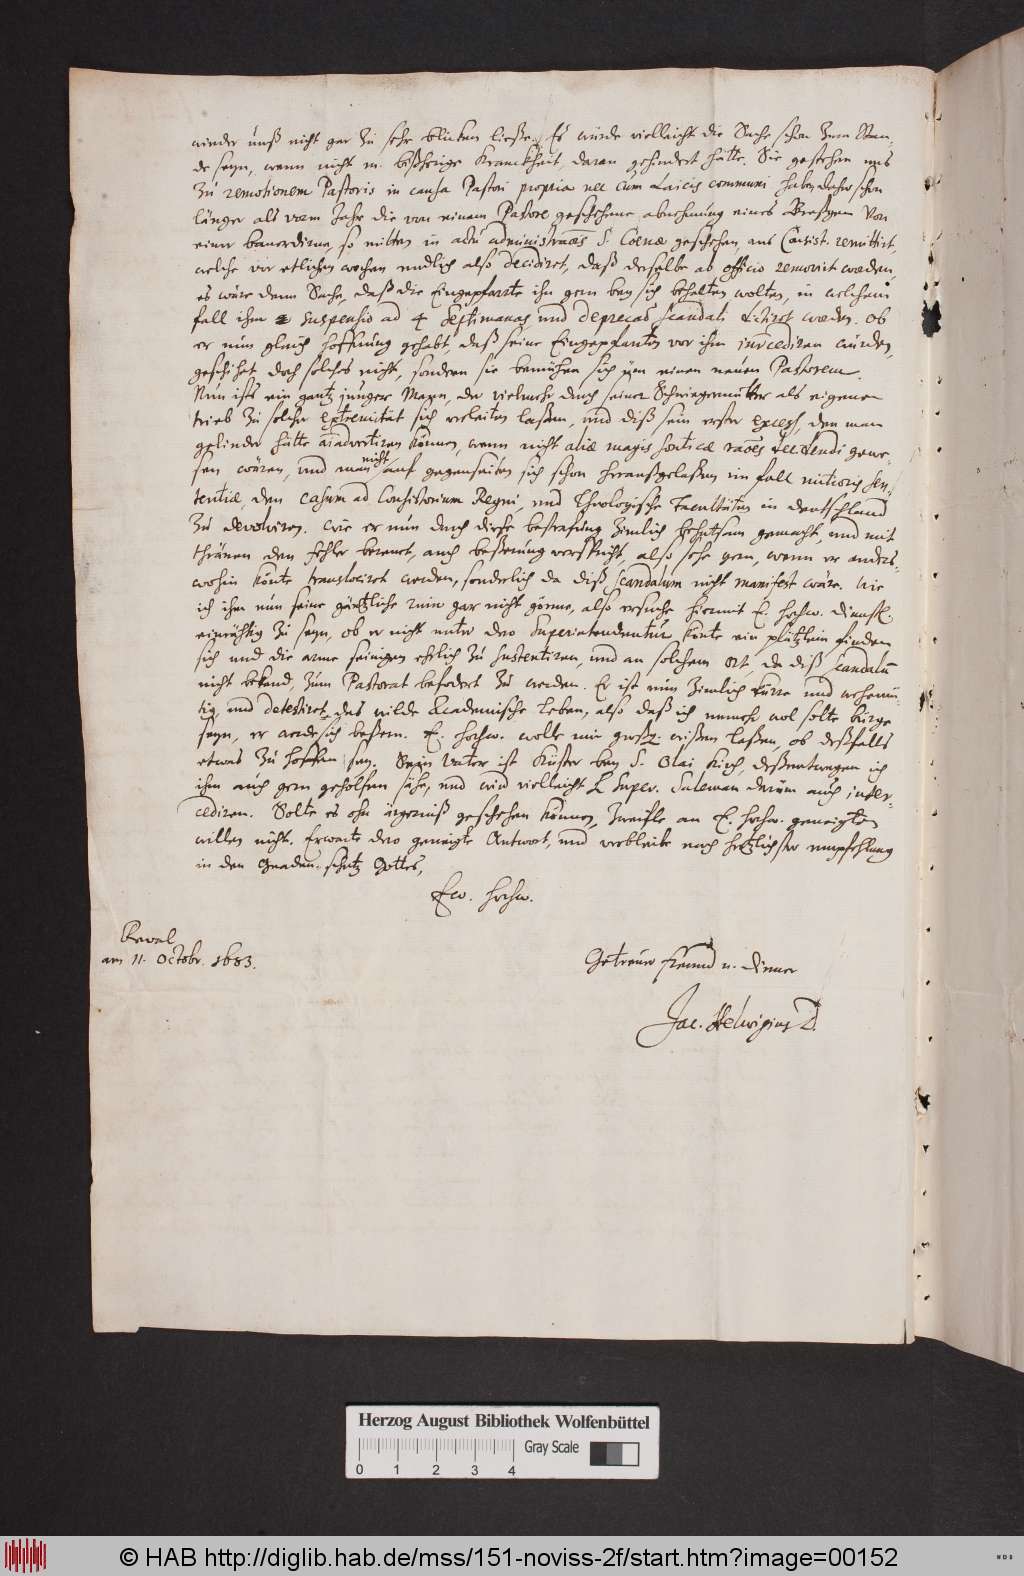 wieder uns nicht gar zu sehr blicken ließe. Es würde vielleicht die Sache schon zum Ende
seyn, wenn nicht m. bißherige Kranckheit daran gehindert hätte. Sie gestehen uns
zu remotionem Pastoris in causa Pastori propria nec cum Laicis communi haben daher schon
länger als vorm Jahr die von einem Pastore geschehene abnehmung eines Von
einer so mitten in actu administraões S. Coenæ geschehen, ans Consist. remittirt,
welche vor etlichen wochen endlich also decidiret, daß derselbe ab officio removirt werden,
es wäre denn Sache, daß die Eingepfarrte ihn gern bey sich behalten wolten, in welchem
fall ihm suspensio ad 4 septimanas und deprecaõ scandali werden. Ob
er nun gleich Hoffnung gehabt, daß seine Eingepfarrten vor ihm intercediren würden,
geschihet doch solches nicht, sondern sie bemühen sich um einen neuen Pastorem.
Nun ists ein gantz junger Mann, der vielmehr durch seine Schwiegermutter als eigenen
trieb zu solcher extremität sich verleiten laßen, und diß sein erster exceß, den man
gelinder hätte können, wenn nicht aliæ magis raões gewe-
sen wären, und man nicht auf gegenseiten sich schon heraußgelaßen im fall mitioris sen-
tentiæ, den casum ad Consistorium Regni, und Theologische Facultäten in deutschland
zu devolviren. Wie er nun durch diese bestrafung zimlich behutsam gemacht, und mit
thränen den fehler bereuet, auch beßerung verspricht, also sehe gern, wenn er anders-
wohin könte translociret werden, sonderlich da diß scandalum nicht manifest wäre. Wie
ich ihm nun seine gäntzliche ruin gar nicht gönne, also ersuche hiermit E. Hochw. dienstl.
zu seyn, ob er nicht unter dero Superintendentur könte ein plätzlein finden
sich und die arme seinigen ehrlich zu sustentiren, und an solchem ort, da diß scandalū
nicht bekand, zum Pastorat befodert zu werden. Er ist nun zimlich kürre und wehemü-
tig, und detestiret das wilde Academische Leben, also daß ich nunmehr wol solte bürge
seyn, er werde sich beßern. E. Hochw. wolle mir großg. wißen laßen, ob deßfalls
etwas zu hoffen sey. Sein Vater ist Küster bey S. Olai Kirch, deßwentwegen ich
ihm auch gern geholfen sähe, und wird vielleicht H. Super. Saleman darum auch inter-
cediren. Solte es ohn ärgerniß geschehen können, zweifle an E. Hochw. geneigten
willen nicht. Erwarte dero geneigte Antwort, und verbleibe nach hertzlicher empfehlung
in den Gnaden-schutz Gottes,
Ew. Hochw.
Reval
am 11. Octobr. 1683.
Getreuer freund u. diener
Jac. Helwigius D.
Herzog August Bibliothek Wolfenbüttel
Gray Scale
0 1 2 3 4
© HAB http://diglib.hab.de/mss/151-noviss-2f/start.htm?image=00152